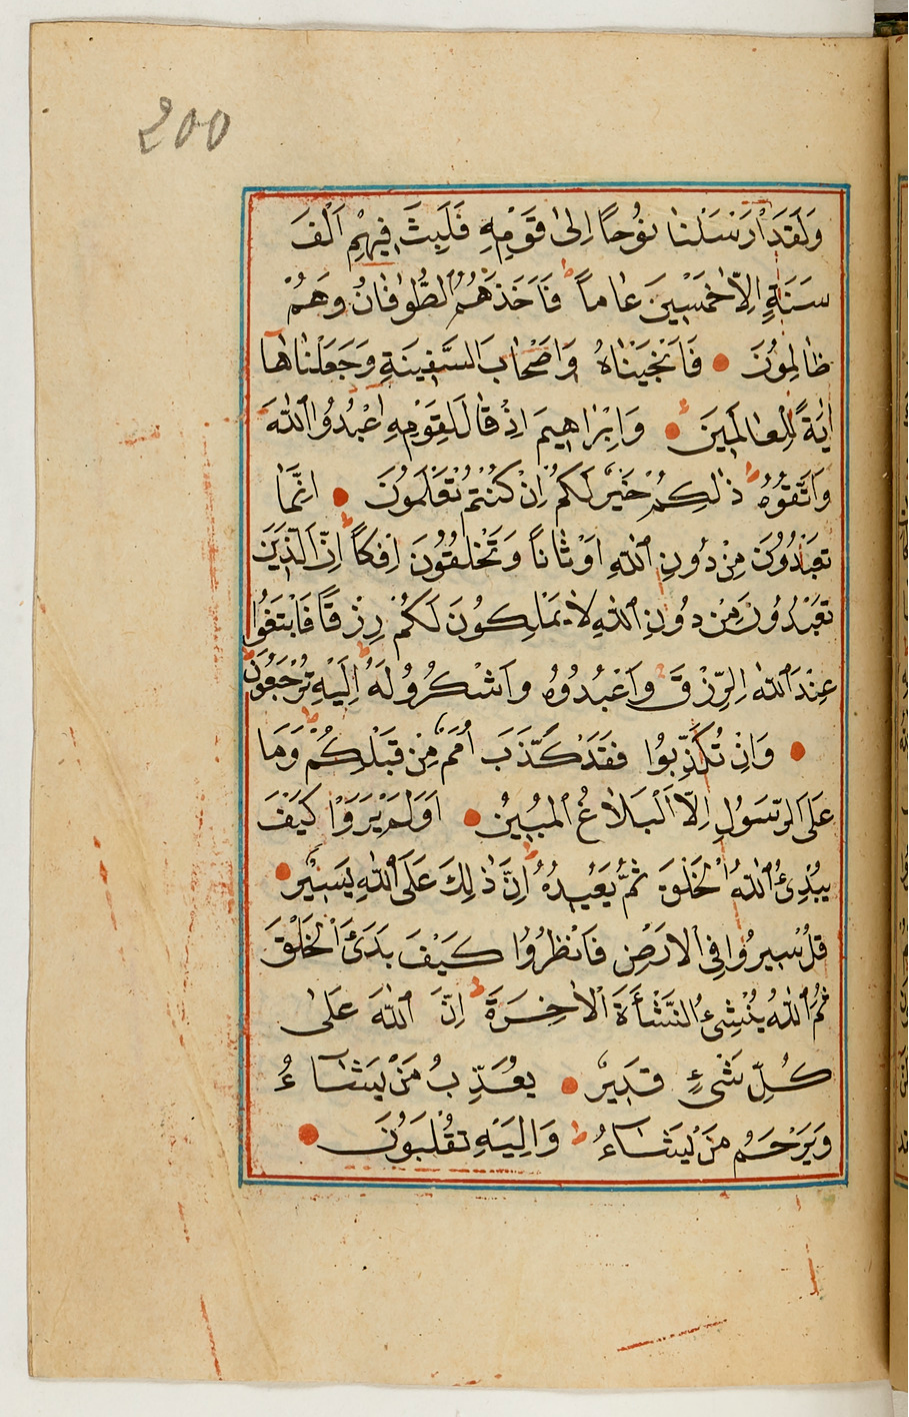 200
وَلَقَدْ اَرْسَلْنَا نُوْحًا اِلٰى قَوْمِهِ فَلَبِثَ فِيهِمْ اَلْفَ
سَنَةٍ اِلَّا خَمْسِينَ عَاماً ط فَاَخَذَهُمُ الطُّوفَانُ وَهُمْ
ظَالِمُونَ فَاَنْجَيْنَاهُ وَاَصْحَابَ السَّفِينَةِ وَجَعَلْنَاهَا
اٰيَةً لِلْعَالَمِينَ وَاِبْرَاهِيمَ اِذْ قَالَ لِقَوْمِهِ اعْبُدُوا اللّٰهَ
وَاتَّقُوهُ ط ذٰلِكُمْ خَيْرٌ لَكُمْ اِنْ كُنْتُمْ تَعْلَمُونَ اِنَّمَا
تَعْبُدُونَ مِنْ دُونِ اللّٰهِ اَوْثَاناً وَتَخْلُقُونَ اِفْكاً ط اِنَّ الَّذِينَ
تَعْبُدُونَ مِنْ دُونِ اللّٰهِ لَا يَمْلِكُونَ لَكُمْ رِزْقًا فَابْتَغُوا
عِنْدَ اللّٰهِ الرِّزْقَ وَاعْبُدُوهُ وَاشْكُرُوا لَهُ ط اِلَيْهِ تُرْجَعُونَ
وَاِنْ تُكَذِّبُوا فَقَدْ كَذَّبَ اُمَمٌ مِنْ قَبْلِكُمْ ط وَمَا
عَلَى الرَّسُولِ اِلَّا الْبَلَاغُ الْمُبِينُ اَوَلَمْ يَرَوْا كَيْفَ
يُبْدِئُ اللّٰهُ الْخَلْقَ ثُمَّ يُعِيدُهُ ط اِنَّ ذٰلِكَ عَلَى اللّٰهِ يَسِيْرٌ
قُلْ سِيرُوا فِى الْاَرْضِ فَانْظُرُوا كَيْفَ بَدَئَ الْخَلْقَ
ثُمَّ اللّٰهُ يُنْشِئُ النَّشْأَةَ الْاٰخِرَةَ ط اِنَّ اللّٰهَ عَلٰى
كُلِّ شَىْءٍ قَدِيرٌ يُعَذِّبُ مَنْ يَشَاءُ
وَيَرْحَمُ مَنْ يَشَاءُ ط وَاِلَيْهِ تُقْلَبُونَ